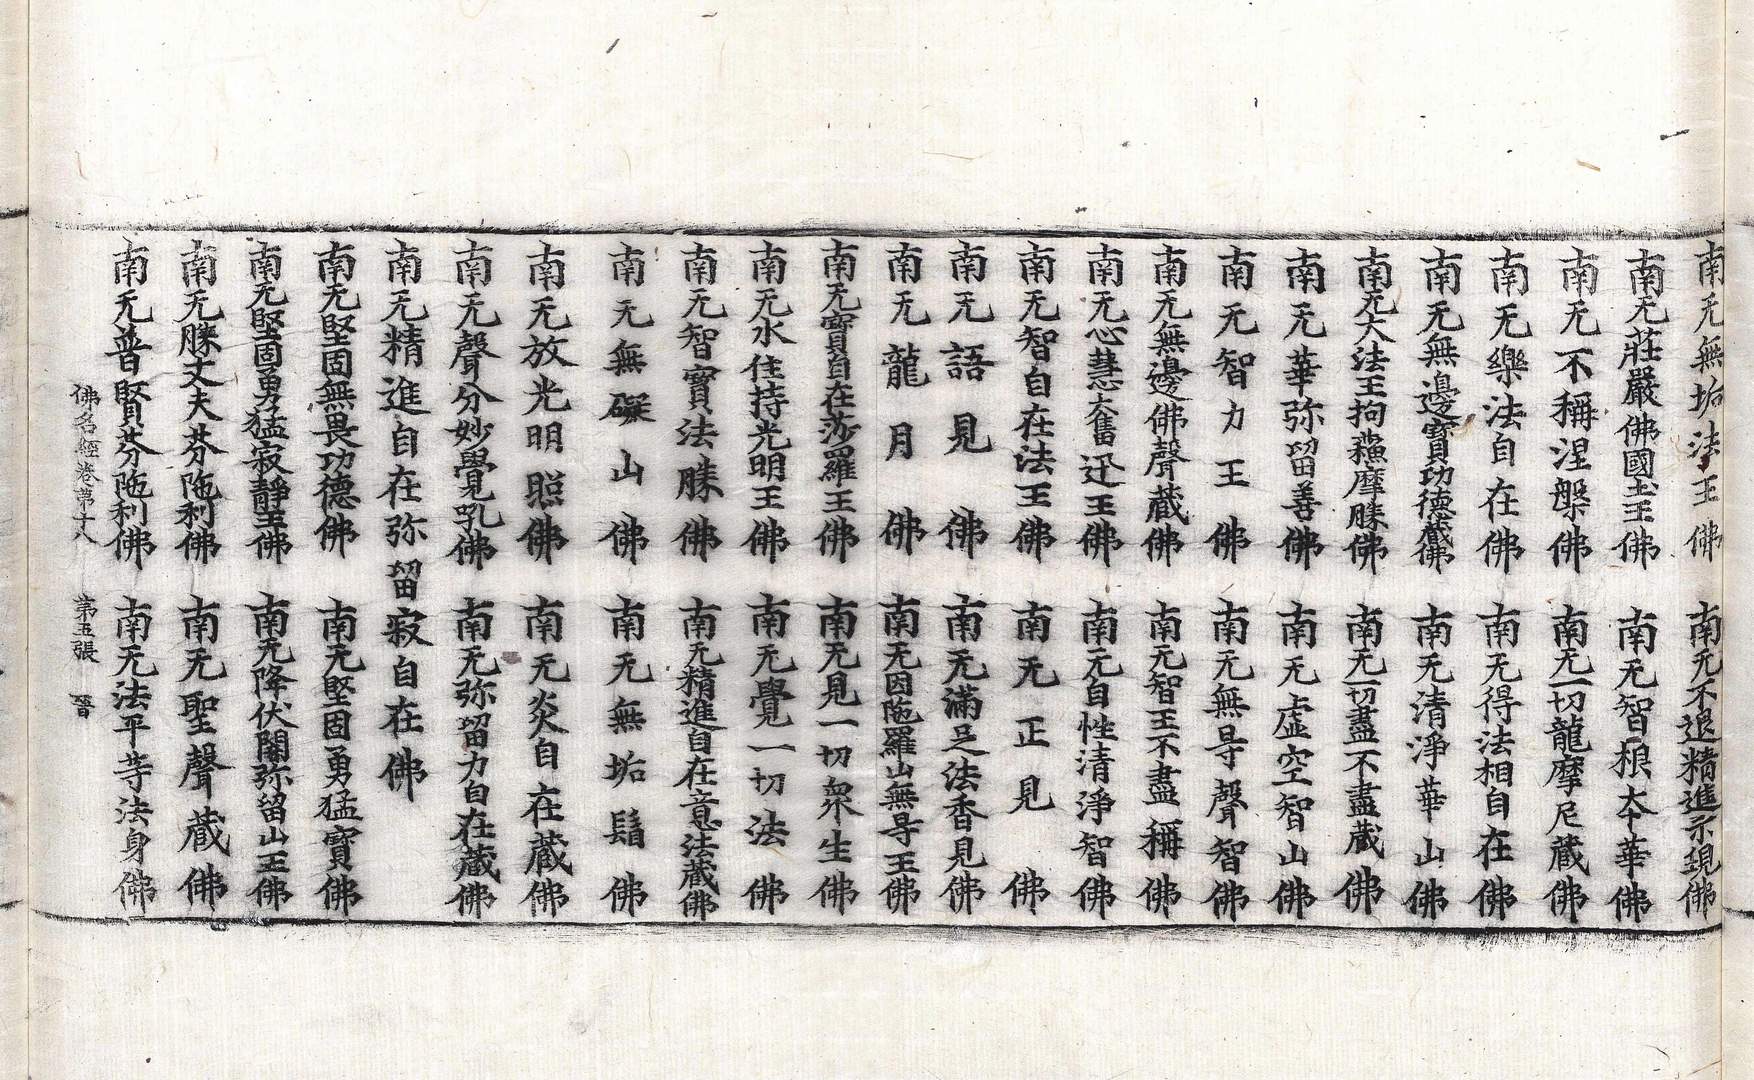 南无無垢法王佛 南无不退精進示現佛
南无莊嚴佛國土王佛 南无智根夲華佛
南无不稱涅槃佛 南无一切龍摩尼藏佛
南无樂法自在佛 南无得法相自在佛
南无無邊寳功德藏佛 南无清淨華山佛
南无大法王拘蘓摩勝佛 南无一切盡不盡藏佛
南无華弥留善佛 南无虛空智山佛
南无智力王佛 南无無㝵聲智佛
南无無邊佛聲藏佛 南无智王不盡稱佛
南无心慧奮迅王佛 南无自性清淨智佛
南无智自在法王佛 南无正見佛
南无語見佛 南无滿足法香見佛
南无龍月佛 南无因陁羅山無㝵王佛
南无寳自在莎羅王佛 南无見一切衆生佛
南无水住持光明王佛 南无覺一切法佛
南无智寳法勝佛 南无精進自在意法藏佛
南无無礙山佛 南无無垢鬚佛
南无放光明照佛 南无炎自在藏佛
南无聲分妙覺吼佛 南无弥留力自在藏佛
南无精進自在弥留寂自在佛
南无堅固無畏功德佛 南无堅固勇猛寳佛
南无堅固勇猛寂靜王佛 南无降伏闍弥留山王佛
南无勝丈夫芬陁利佛 南无聖聲藏佛
南无普賢芬陁利佛 南无法平等法身佛
佛名經卷第十八 第五張 晉